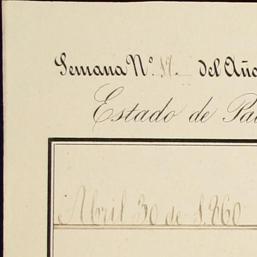 Semana Nº. 17. del Año
Estado de Pa
Abril 30 de 1.860